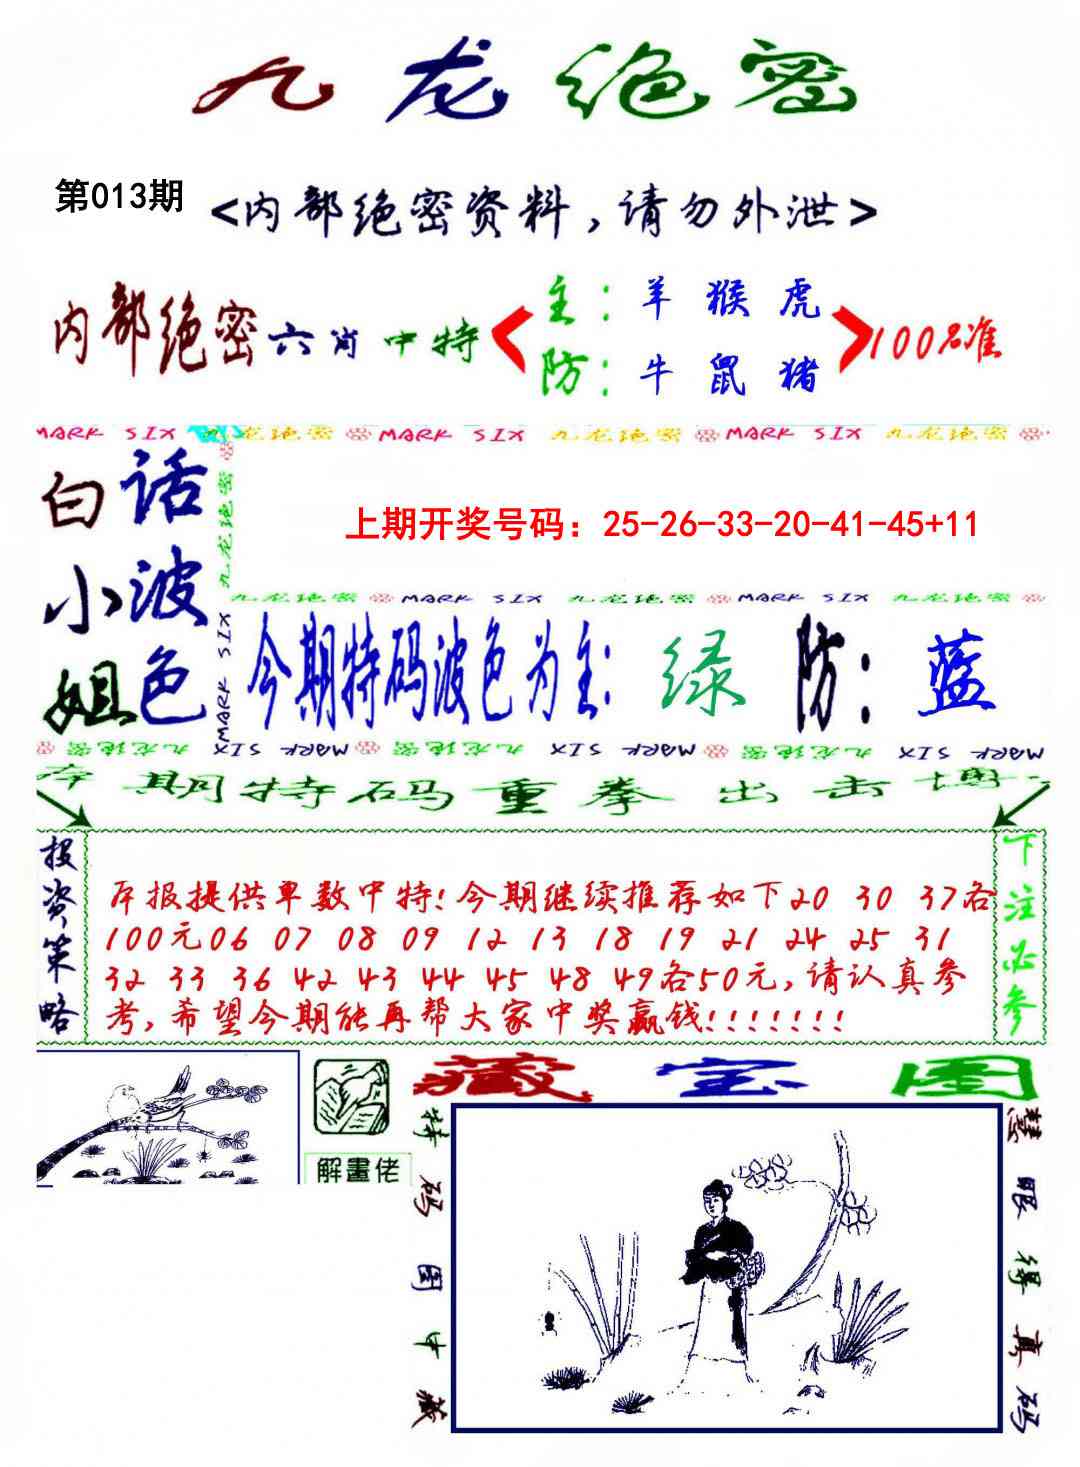 九龙绝密
第013期
<内部绝密资料,请勿外泄>
内部绝密六肖中特
主:羊 猴 虎
防:牛 鼠 猪
100%准
MARK SIX 九龙绝密 MARK SIX 九龙绝密 MARK SIX 九龙绝密
白小姐
话波色
九龙绝密
MARK SIX
上期开奖号码：25-26-33-20-41-45+11
九龙绝密 MARK SIX 九龙绝密 MARK SIX 九龙绝密
今期特码波色为主:绿 防:蓝
九龙绝密 MARK SIX 九龙绝密 MARK SIX 九龙绝密 MARK SIX
本期特码重拳出击博
投资策略
本报提供单数中特!今期继续推荐如下20 30 37各
100元06 07 08 09 12 13 18 19 21 24 25 31
32 33 36 42 43 44 45 48 49各50元,请认真参
考,希望今期能再帮大家中奖赢钱!!!!!!!
下注必参
解畫佬
藏宝图
特码图中藏
慧眼得真码